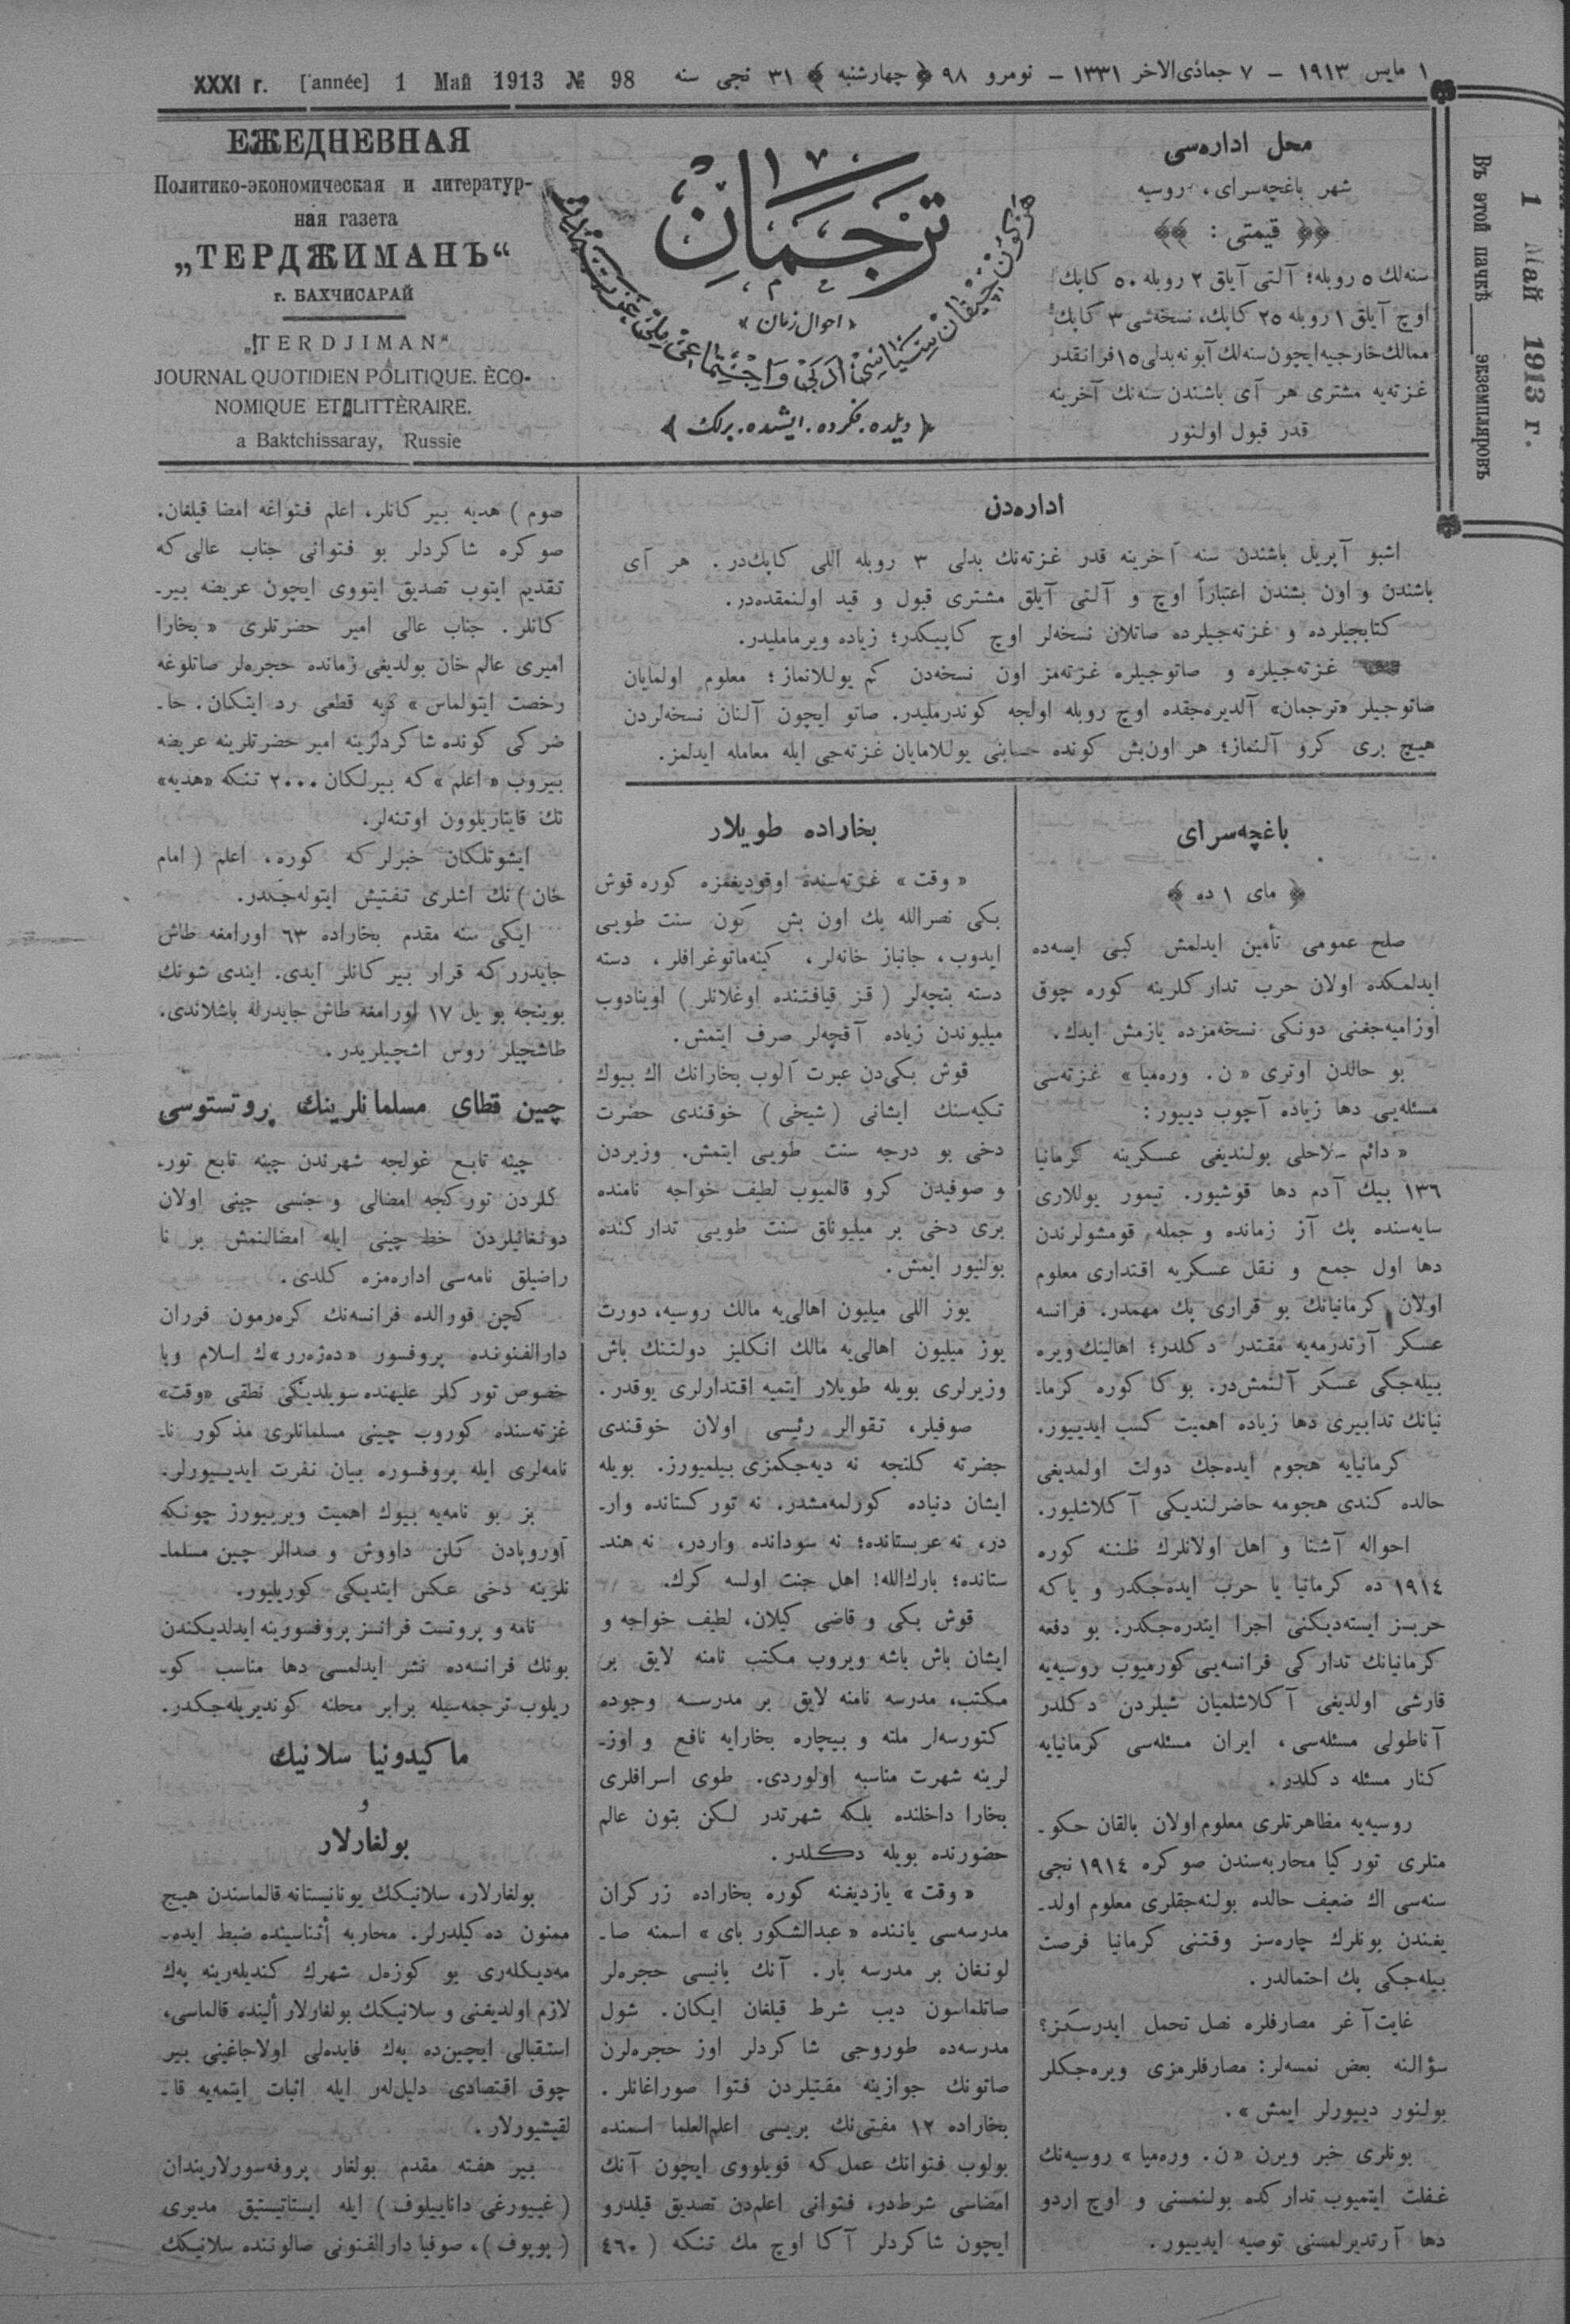 ١ مايس ١٩١٣ – ٧ جماذى‌الاخر ١٣٣١ – نومرو ٩٨ ﴿ چهارشنبه ﴾ ٣١ نجى سنه
XXXI г. [année] 1 Май 1913 № 98
ЕЖЕДНЕВНАЯ
Политико-экономическая и литератур-
ная газета
„ТЕРДЖИМАНЪ“
г. БАХЧИСАРАЙ
„TERDJIMAN“
JOURNAL QUOTIDIEN POLITIQUE. ÈCO-
NOMIQUE ET LITTÈRAIRE.
a Baktchissaray, Russie
ترجمان
« احوال زمان »
﴿ ديلده. فكرده. ايشده. برلك ﴾
محل اداره‌سى
شهر باغچه‌سراى، روسيه
قيمتى :
سنه‌لك ٥ روبله؛ آلتى آيلق ٢ روبله ٥٠ كاپك
اوچ آيلق ١ روبله ٢٥ كاپك، نسخه‌سى ٣ كاپك
ممالك خارجيه ايچون سنه‌لك آبونه بدلى ١٥ فرانقدر
غزته‌يه مشترى هر آى باشندن سنه‌نك آخرينه
قدر قبول اولنور
1 Май 1913 г.
Въ этой пачкѣ ____ экземпляровъ
اداره‌دن
اشبو آپريل باشندن سنه آخرينه قدر غزته‌نك بدلى ٣ روبله اللى كاپك‌در. هر آى
باشندن و اون بشندن اعتباراً اوچ و آلتى آيلق مشترى قبول و قيد اولنمقده‌در.
كتابجيلرده و غزته‌جيلرده صاتلان نسخه‌لر اوچ كاپيكدر؛ زياده ويرمامليدر.
غزته‌جيلره و صاتوجيلره غزته‌مز اون نسخه‌دن كم يوللانماز؛ معلوم اولمايان
صاتوجيلر «ترجمان» آلديره‌جقده اوچ روبله اولجه كوندرمليدر. صاتو ايچون آلنان نسخه‌لردن
هيچ برى كرو آلنماز؛ هر اون‌بش كونده حسابنى يوللامايان غزته‌جى ايله معامله ايدلمز.
باغچه‌سراى
﴿ ماى ١ ده ﴾
صلح عمومى تأمين ايدلمش كبى ايسه‌ده
ايدلمكده اولان حرب تداركلرينه كوره چوق
اوزاميه‌جغنى دونكى نسخه‌مزده يازمش ايدك.
بو حالدن اوترى « ن. وره‌ميا » غزته‌سى
مسئله‌يى دها زياده آچوب ديیور :
« دائم سلاحلى بولنديغى عسكرينه كرمانيا
١٣٦ بيك آدم دها قوشيور. تيمور يوللارى
سايه‌سنده پك آز زمانده و جمله قومشولرندن
دها اول جمع و نقل عسكريه اقتدارى معلوم
اولان كرمانيانك بو قرارى پك مهمدر. فرانسه
عسكر آرتدرمه‌يه مقتدر دكلدر؛ اهالينك ويره
بيله‌جكى عسكر آلنمش‌در. بوكا كوره كرما-
نيانك تدابيرى دها زياده اهميت كسب ايديیور.
كرمانيايه هجوم ايده‌جك دولت اولمديغى
حالده كندى هجومه حاضرلنديكى آكلاشليور.
احواله آشنا و اهل اولانلرك ظننه كوره
١٩١٤ ده كرمانيا يا حرب ايده‌جكدر و ياكه
حربسز ايسته‌ديكنى اجرا ايتدره‌جكدر. بو دفعه
كرمانيانك تداركى فرانسه‌يى كورميوب روسيه‌يه
قارشى اولديغى آكلاشلميان شيلردن دكلدر
آناطولى مسئله‌سى، ايران مسئله‌سى كرمانيايه
كنار مسئله دكلدر.
روسيه‌يه مظاهرتلرى معلوم اولان بالقان حكو-
متلرى توركيا محاربه‌سندن صوكره ١٩١٤ نجى
سنه‌سى اك ضعيف حالده بولنه‌جقلرى معلوم اولد-
يغندن بونلرك چاره‌سز وقتنى كرمانيا فرصت
بيله‌جكى پك احتمالدر.
غايت آغر مصارفلره نصل تحمل ايدرسكز؟
سؤالنه بعض نمسه‌لر: مصارفلرمزى ويره‌جكلر
بولنور ديیورلر ايمش ».
بونلرى خبر ويرن « ن. وره‌ميا » روسيه‌نك
غفلت ايتميوب تداركده بولنمسنى و اوچ اردو
دها آرتديرلمسنى توصيه ايديیور.
بخاراده طويلار
« وقت » غزته‌سنده اوقوديغمزه كوره قوش
بكى نصرالله بك اون بش كون سنت طويى
ايدوب، جانباز خانه‌لر، كينه‌ماتوغرافلر، دسته
دسته بتچه‌لر ( قز قيافتنده اوغلانلر ) اوينادوب
ميليوندن زياده آقچه‌لر صرف ايتمش.
قوش بكى‌دن عبرت آلوب بخارانك اك بيوك
تكيه‌سنك ايشانى ( شيخى ) خوقندى حضرت
دخى بو درجه سنت طويى ايتمش. وزيردن
و صوفيدن كرو قالميوب لطيف خواجه نامنده
برى دخى بر ميليونلق سنت طويى تداركنده
بولنيور ايمش.
يوز اللى ميليون اهالى‌يه مالك روسيه، دورت
يوز ميليون اهالى‌يه مالك انكليز دولتنك باش
وزيرلرى بويله طويلار ايتميه اقتدارلرى يوقدر.
صوفيلر، تقوالر رئيسى اولان خوقندى
حضرته كلنجه نه ديه‌جكمزى بيلميورز. بويله
ايشان دنياده كورلمه‌مشدر. نه توركستانده وار-
در، نه عربستانده؛ نه سودانده واردر، نه هند-
ستانده؛ بارك‌الله! اهل جنت اولسه كرك.
قوش بكى و قاضى كلان، لطيف خواجه و
ايشان باش باشه ويروب مكتب نامنه لايق بر
مكتب، مدرسه نامنه لايق بر مدرسه وجوده
كتورسه‌لر ملته و بيچاره بخارايه نافع و اوز-
لرينه شهرت مناسبه اولوردى. طوى اسرافلرى
بخارا داخلنده بلكه شهرتدر لكن بتون عالم
حضورنده بويله دكلدر.
« وقت » يازديغنه كوره بخاراده زركران
مدرسه‌سى ياننده « عبدالشكور باى » اسمنه صا-
لونغان بر مدرسه بار. آنك بانيسى حجره‌لر
صاتلماسون ديب شرط قيلغان ايكان. شول
مدرسه‌ده طوروجى شاكردلر اوز حجره‌لرن
صاتونك جوازينه مفتيلردن فتوا صوراغانلر.
بخاراده ١٢ مفتى‌نك بريسى اعلم‌العلما اسمنده
بولوب فتوانك عمل‌كه قويلووى ايچون آنك
امضاسى شرطدر، فتوانى اعلم‌دن تصديق قيلدرو
ايچون شاكردلر آكا اوچ مك تنكه ( ٤٦٠
صوم ) هديه بيركانلر، اعلم فتواغه امضا قيلغان.
صوكره شاكردلر بو فتوانى جناب عالى‌كه
تقديم ايتوب تصديق ايتووى ايچون عريضه بير-
كانلر. جناب عالى امير حضرتلرى « بخارا
اميرى عالم خان بولديغى زمانده حجره‌لر صاتلوغه
رخصت ايتولماس » ديه قطعى رد ايتكان. حا-
ضركى كونده شاكردلرينه امير حضرتلرينه عريضه
بيروب « اعلم » كه بيرلكان ٢٠٠٠ تنكه «هديه»
نك قايتاريلوون اوتنه‌لر.
ايشوتلكان خبرلركه كوره، اعلم ( امام
خان ) نك اشلرى تفتيش ايتوله‌جكدر.
ايكى سنه مقدم بخاراده ٦٣ اورامغه طاش
جايدرركه قرار بيركانلر ايدى. ايندى شونك
بوينجه بو يل ١٧ اورامغه طاش جايدرله باشلاندى.
طاشچيلر روس اشچيلريدر.
چين قطاى مسلمانلرينك پروتستوسى
چينه تابع غولجه شهرندن چينه تابع تور-
كلردن توركجه امضالى و جنسى چينى اولان
دونغانيلردن خط چينى ايله امضالنمش بر نا
راضيلق نامه‌سى اداره‌مزه كلدى.
كچن فورالده فرانسه‌نك كره‌رمون فرران
دارالفنونده پروفسور «ده‌ژه‌رر»ك اسلام وبا
خصوص توركلر عليهنده سويلديكى نطقى «وقت»
غزته‌سنده كوروب چينى مسلمانلرى مذكور نا-
نامه‌لرى ايله پروفسوره بيان نفرت ايديیورلر.
بز بو نامه‌يه بيوك اهميت ويريیورز چونكه
آوروپادن كلن داووش و صدالر چين مسلما-
نلرينه دخى عكس ايتديكى كوريليور.
نامه و پروتست فرانسز پروفسورينه ايدلديكندن
بونك فرانسه‌ده نشر ايدلمسى دها مناسب كو-
ريلوب ترجمه‌سيله برابر محلنه كونديريله‌جكدر.
ماكيدونيا سلانيك
و
بولغارلار
بولغارلار، سلانيكك يونانيستانه قالماسندن هيچ
ممنون ده‌كيلدرلر. محاربه أثناسينده ضبط ايده-
مه‌ديكله‌رى بو كوزه‌ل شهرك كنديله‌رينه په‌ك
لازم اولديغنى و سلانيكك بولغارلار ألينده قالماسى،
استقبالى ايچين‌ده په‌ك فايده‌لى اولاجاغينى بير
چوق اقتصادى دليل‌لر ايله اثبات ايتمه‌يه قا-
لقيشيورلار.
بير هفته مقدم بولغار پروفه‌سورلاريندان
( غييورغى داناييلوف ) ايله ايستاتيستيق مديرى
( پوپوف )، صوفيا دارالفنونى صالوننده سلانيكك